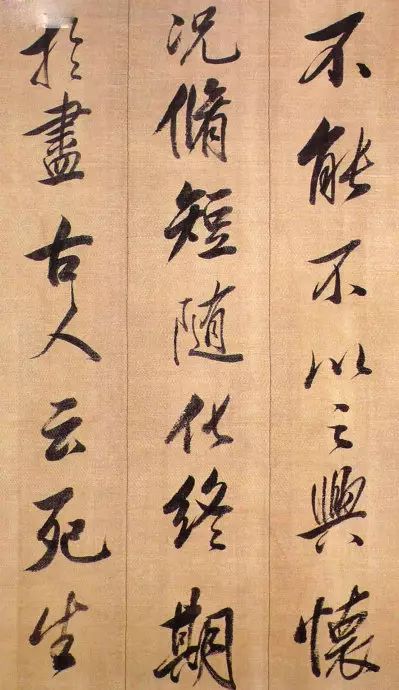 不能不以之興懷
況脩短隨化終期
於盡古人云死生